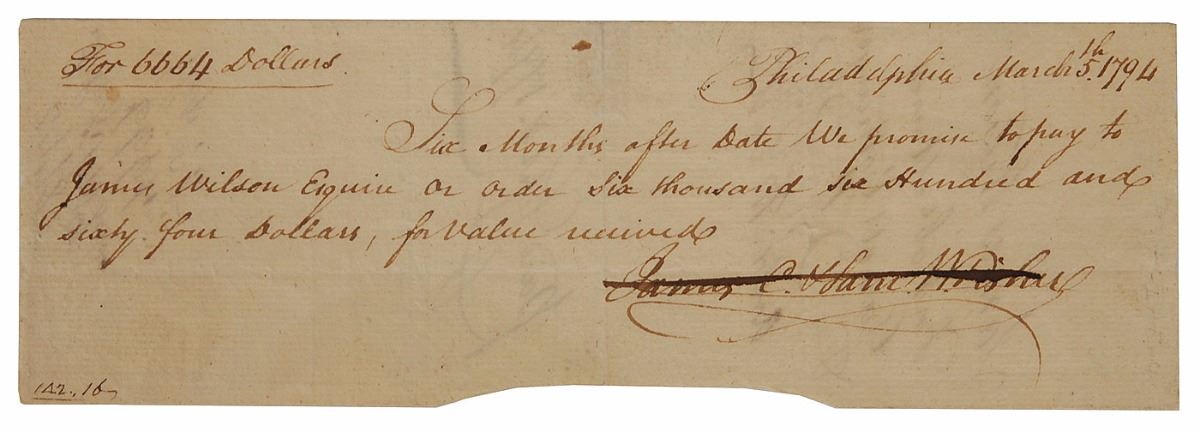 For 6664 Dollars.
Philadelphia March 5th. 1794
Six Months after Date We promise to pay to
James Wilson Esquire or order Six thousand six Hundred and
sixty four Dollars, for Value received
James C. & Sam. W. Fisher
142.,16